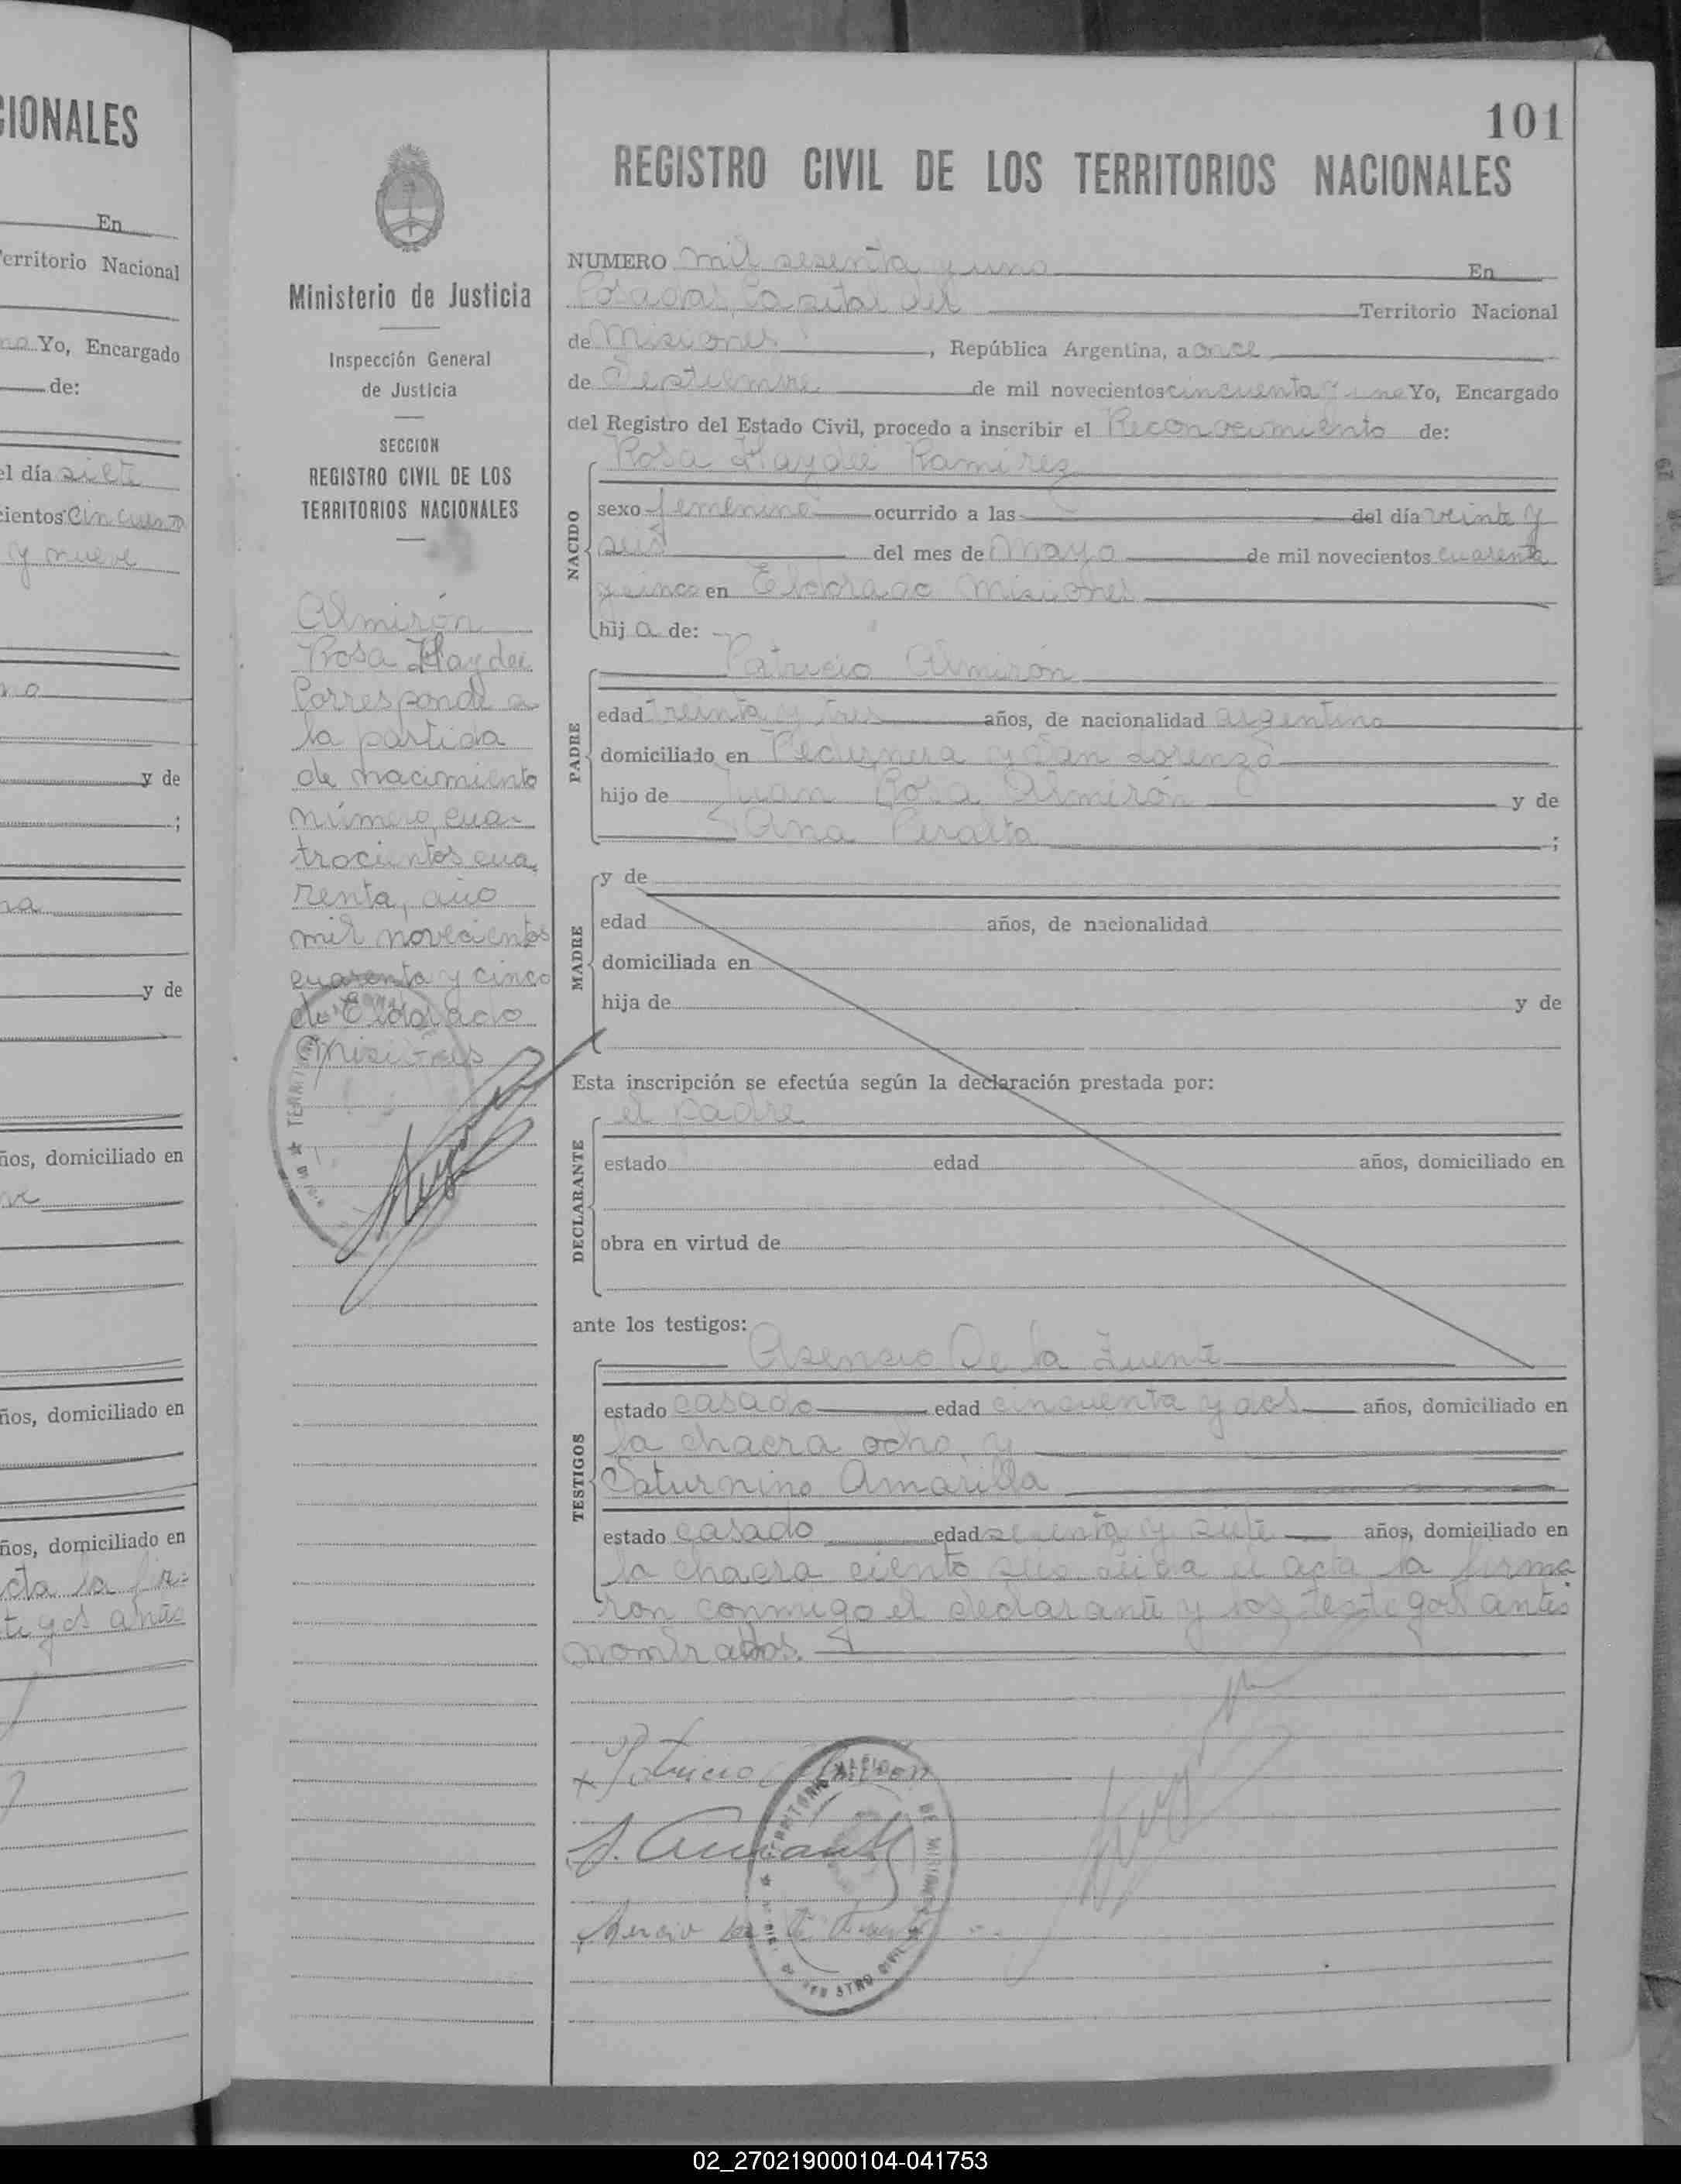 CIONALES
En
erritorio Nacional
Yo, Encargado
de:
el día siete
cientos Cincuenta
y nueve
y de
;
y de
ños, domiciliado en
ños, domiciliado en
ños, domiciliado en
cta la fir-
tigos antes
Ministerio de Justicia
Inspección General
de Justicia
SECCION
REGISTRO CIVIL DE LOS
TERRITORIOS NACIONALES
Almirón
Rosa Haydee
Corresponde a
la partida
de nacimiento
número cua-
trocientos cua
renta, año
mil novecientos
cuarenta y cinco
de Eldorado
Misiones
101
REGISTRO CIVIL DE LOS TERRITORIOS NACIONALES
NUMERO mil sesenta y uno En
Posadas, Capital del Territorio Nacional
de Misiones, República Argentina, a once
de Septiembre de mil novecientos cincuenta y uno Yo, Encargado
del Registro del Estado Civil, procedo a inscribir el Reconocimiento de:
Rosa Haydee Ramirez
NACIDO
sexo femenino ocurrido a las del día veinte y
seis del mes de Mayo de mil novecientos cuarenta
y cinco en Eldorado Misiones
hija de:
PADRE
Patricio Almirón
edad treinta y tres años, de nacionalidad argentina
domiciliado en Pedernera y San Lorenzo
hijo de Juan Rosa Almirón y de
Ana Peralta ;
MADRE
y de
edad años, de nacionalidad
domiciliada en
hija de y de
Esta inscripción se efectúa según la declaración prestada por:
el padre
DECLARANTE
estado edad años, domiciliado en
obra en virtud de
ante los testigos:
TESTIGOS
Asencio De la Fuente
estado casado edad cincuenta y dos años, domiciliado en
la chacra ocho, y
Saturnino Amarilla
estado casado edad y siete años, domiciliado en
la chacra ciento el acta la firma
ron conmigo el declarante y los testigos antes
nombrados.
Patricio Almiron
S. Amarilla
Asencio De la Fuente
02_270219000104-041753